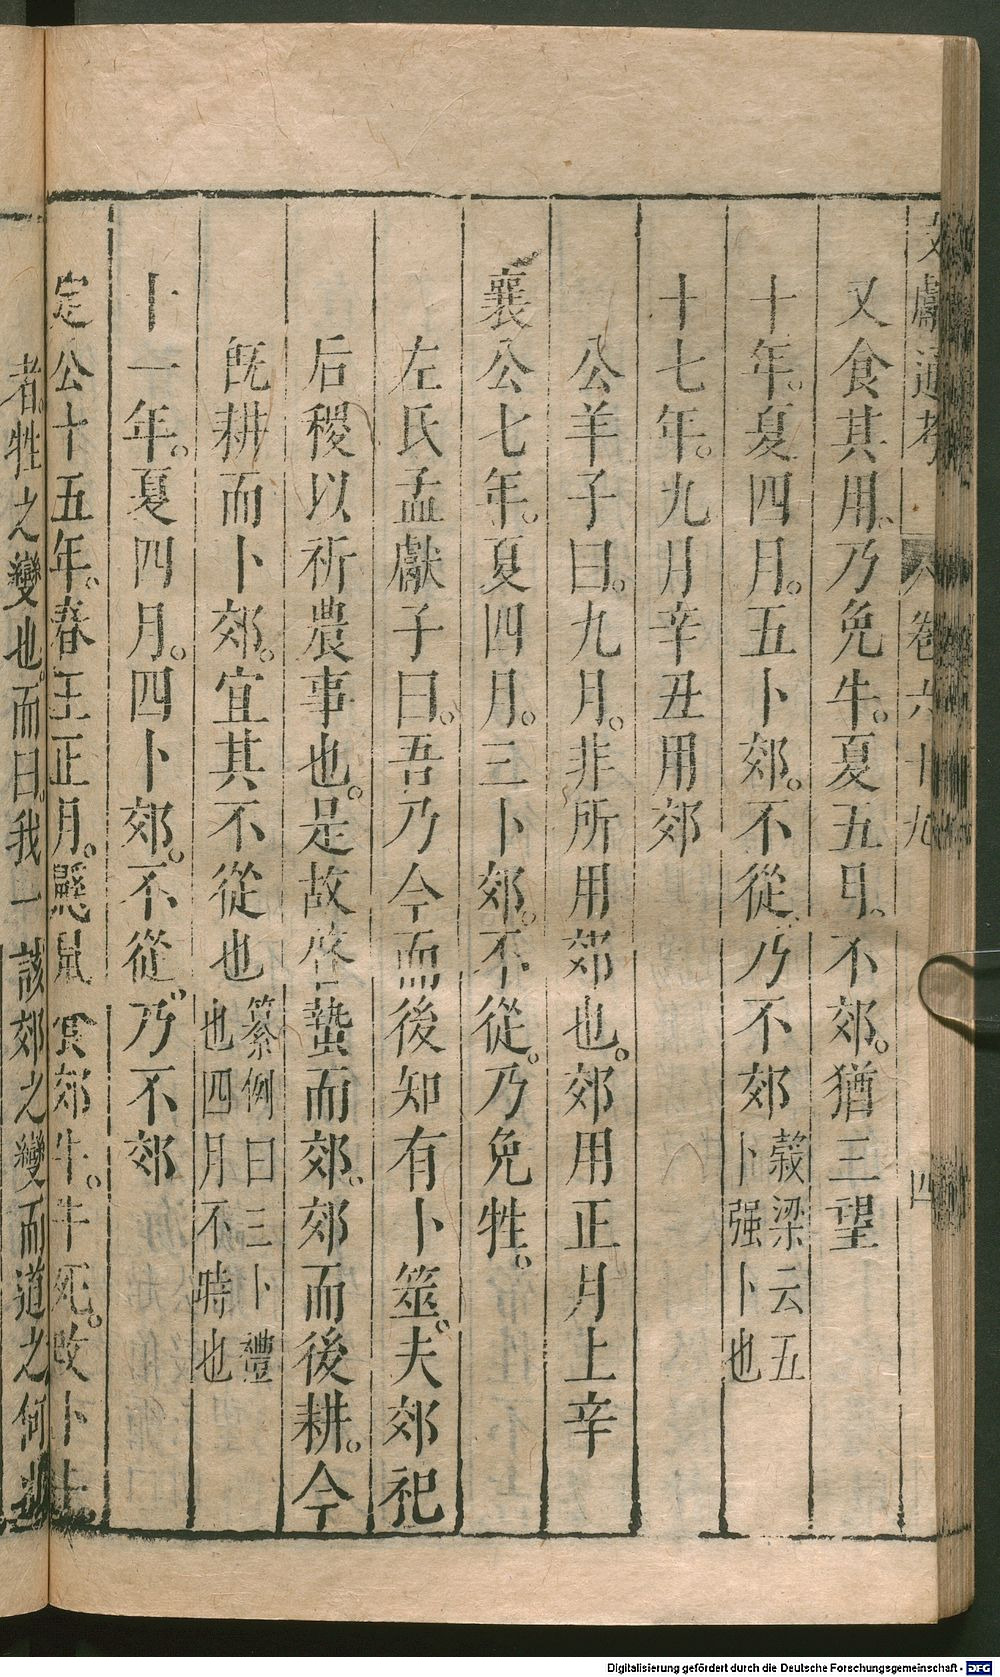 文獻通考 卷六十九 四
又食其用乃免牛。夏五月。不郊。猶三望
十年。夏四月。五卜郊。不從。乃不郊
穀梁云五
卜强卜也
十七年。九月辛丑用郊
公羊子曰。九月。非所用郊也。郊用正月上辛
襄公七年。夏四月。三卜郊。不從。乃免牲。
左氏孟獻子曰。吾乃今而後知有卜筮。夫郊祀
后稷以祈農事也。是故啓蟄而郊。郊而後耕。今
旣耕而卜郊。宜其不從也
纂例曰三卜禮
也四月不時也
十一年。夏四月。四卜郊。不從。乃不郊
定公十五年。春王正月。鼷鼠食郊牛。牛死。改卜牛。
者。牲之變也。而曰。我一該郊之變而道之何也
Digitalisierung gefördert durch die Deutsche Forschungsgemeinschaft - DFG